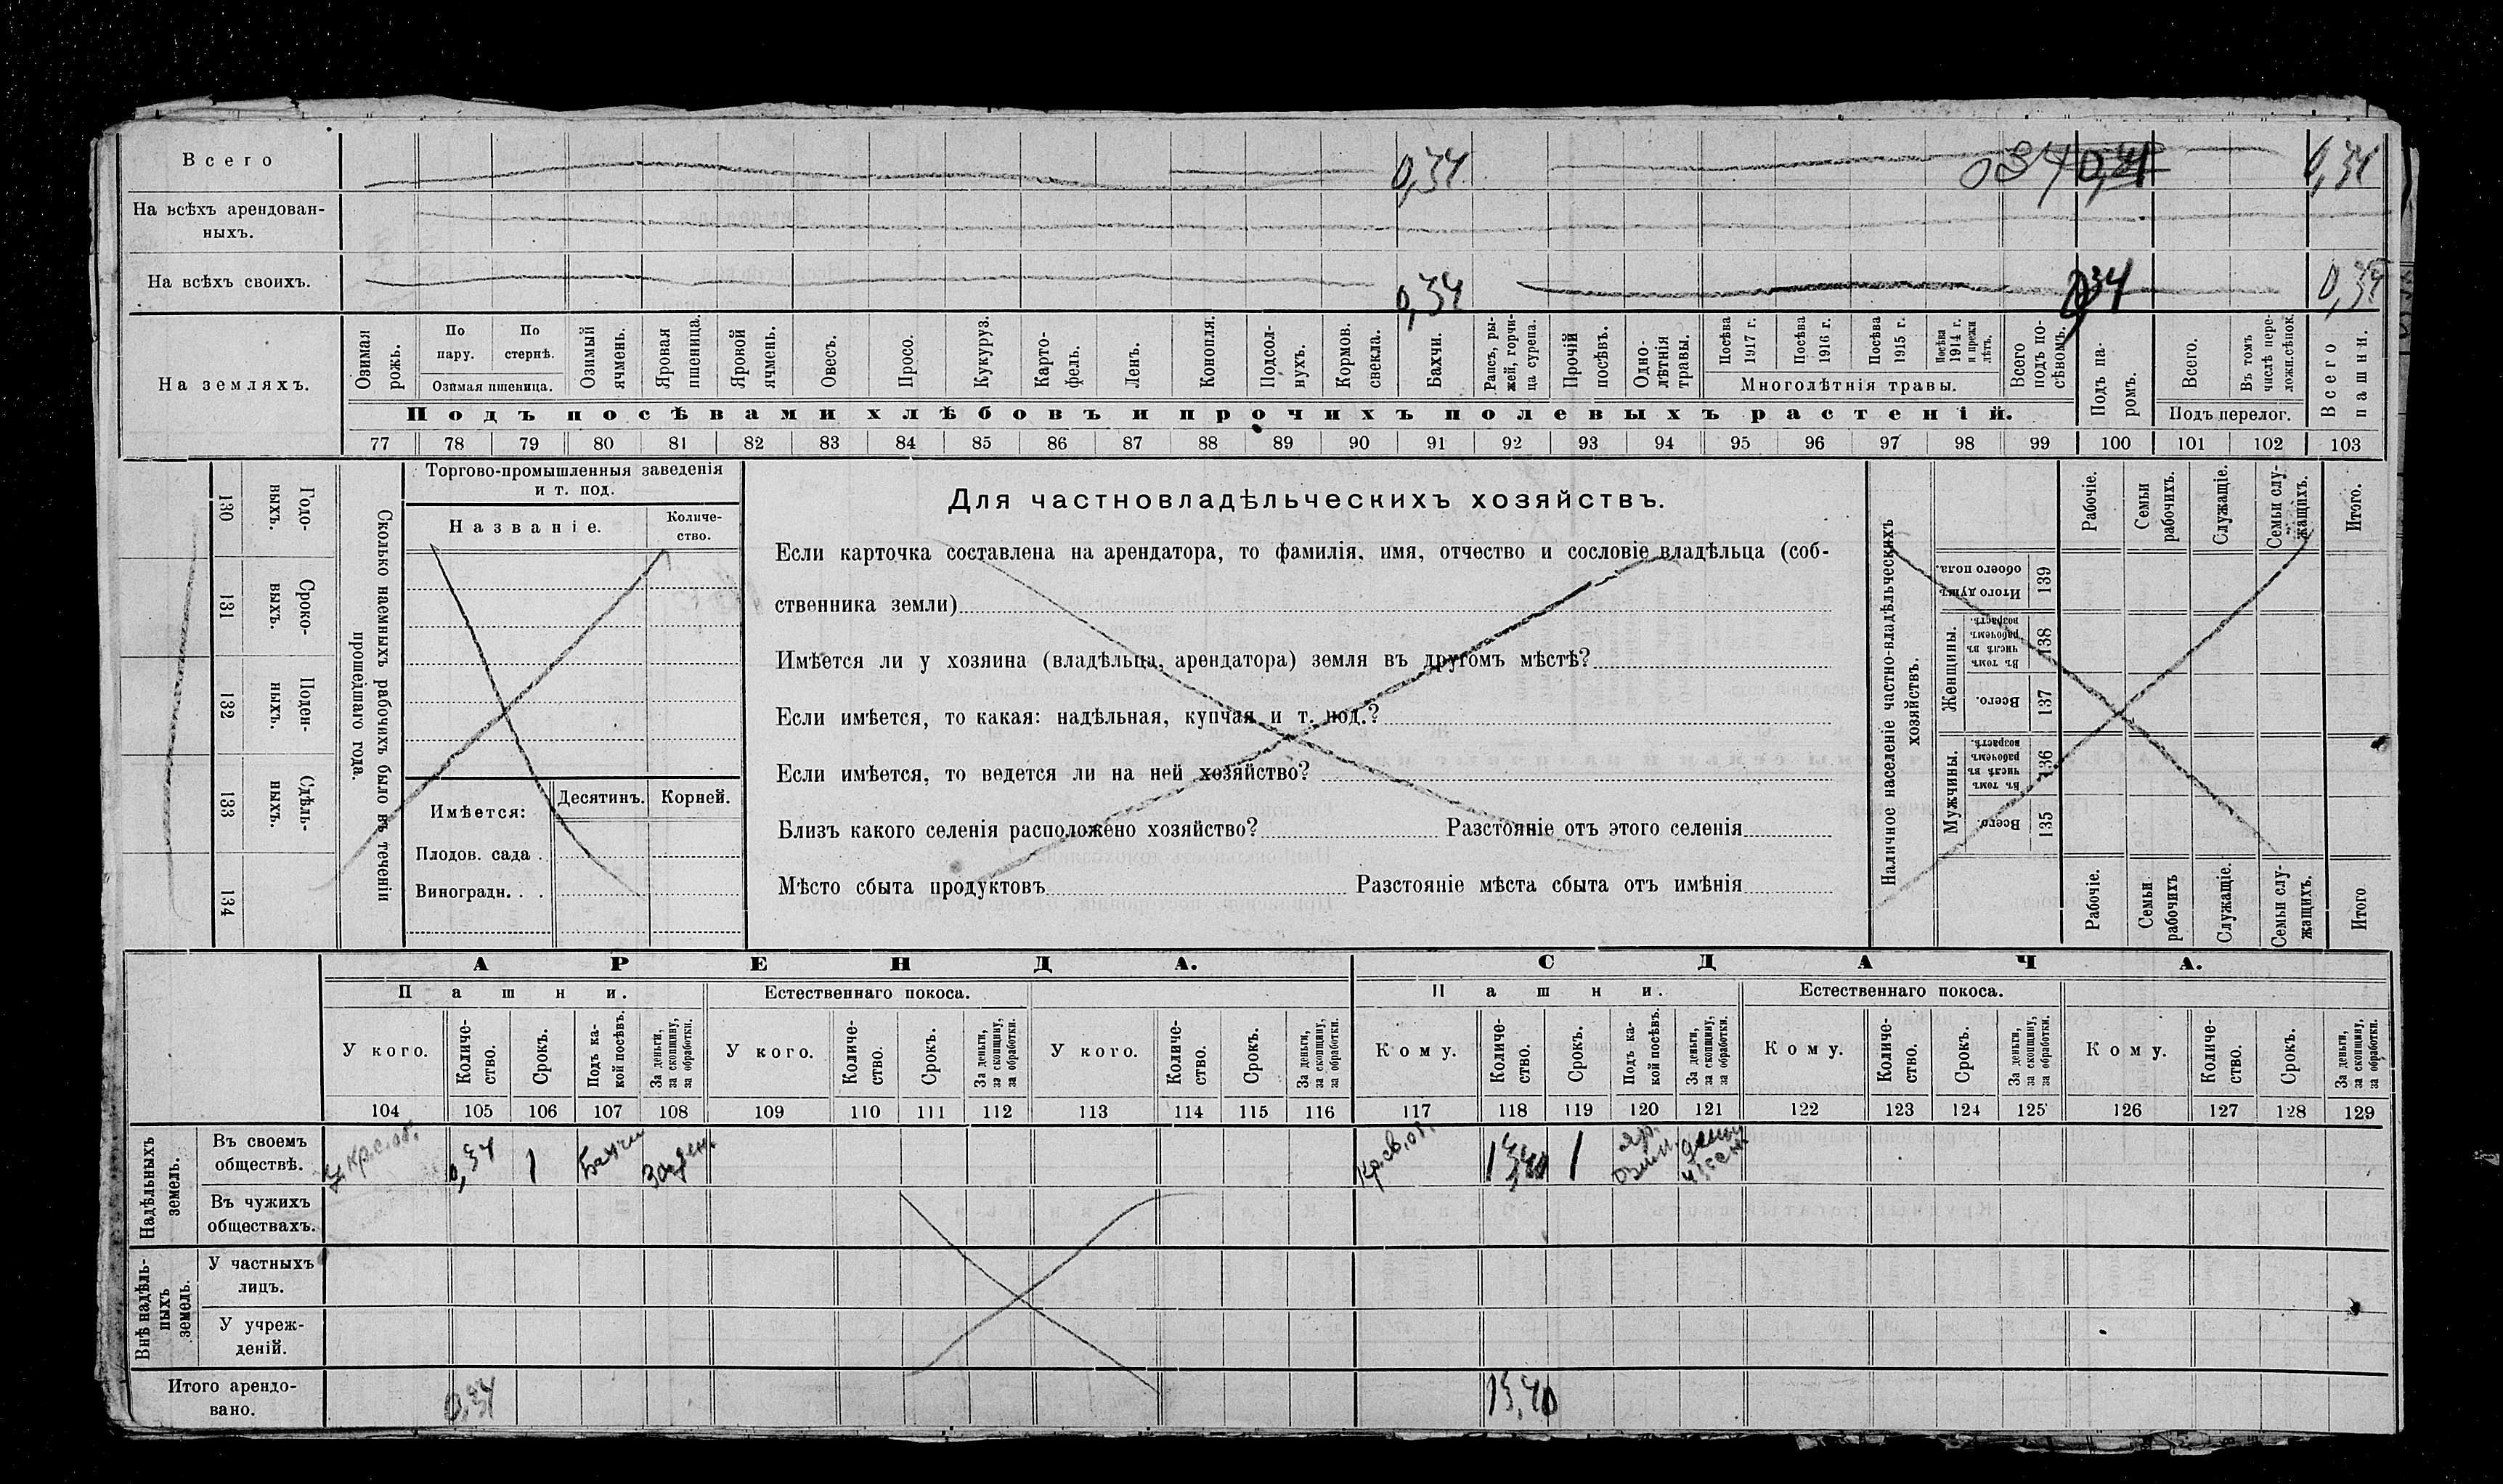 Всего 0,34 034 0,34 0,34
На всѣхъ арендован-
ныхъ.
На всѣхъ своихъ. 0,34 0,34 0,34
На земляхъ.
Озимая рожь.
По пару.
По стернѣ.
Озимая пшеница.
Озимый ячмень.
Яровая пшеница.
Яровой ячмень.
Овесъ.
Просо.
Кукуруз.
Карто-
фель.
Ленъ.
Конопля.
Подсол-
нухъ.
Кормов. свекла.
Бахчи.
Рапсъ, ры-
жей, горчи-
ца сурепа.
Прочій посѣвъ.
Одно-
лѣтнія травы.
Посѣва 1917 г.
Посѣва 1916 г.
Посѣва 1915 г.
Посѣва 1914 г. и прежн лѣтъ.
Многолѣтнія травы.
Всего подъ по-
сѣвомъ.
Подъ па-
ромъ.
Всего.
Въ томъ числѣ пере-
лож. сѣнок.
Подъ перелог.
Всего пашни.
Подъ посѣвами хлѣбовъ и прочихъ полевыхъ растеній.
77 78 79 80 81 82 83 84 85 86 87 88 89 90 91 92 93 94 95 96 97 98 99 100 101 102 103
130 Годо-
выхъ.
131 Сроко-
выхъ.
132 Поден-
ныхъ.
133 Сдѣль-
ныхъ.
134
Сколько наемныхъ рабочихъ было въ теченіи
прошедшаго года.
Торгово-промышленныя заведенія
и т. под.
Названіе.
Количе-
ство.
Имѣется: Десятинъ. Корней.
Плодов. сада .
Виноградн. . .
Для частновладѣльческихъ хозяйствъ.
Если карточка составлена на арендатора, то фамилія, имя, отчество и сословіе владѣльца (соб-
ственника земли)
Имѣется ли у хозяина (владѣльца, арендатора) земля въ другомъ мѣстѣ?
Если имѣется, то какая: надѣльная, купчая и т. под.?
Если имѣется, то ведется ли на ней хозяйство?
Близъ какого селенія расположено хозяйство? Разстояніе отъ этого селенія
Мѣсто сбыта продуктовъ Разстояніе мѣста сбыта отъ имѣнія
Наличное населеніе частно-владѣльческихъ
хозяйствъ.
Рабочіе.
Семьи рабочихъ.
Служащіе.
Семьи слу-
жащихъ.
Итого.
Итого душъ обоего пола. 139
Женщины.
Въ томъ числѣ въ рабочемъ возрастѣ. 138
Всего. 137
Мужчины.
Въ томъ числѣ въ рабочемъ возрастѣ. 136
Всего. 135
Рабочіе.
Семьи рабочихъ
Служащіе.
Семьи слу-
жащихъ.
Итого
АРЕНДА. СДАЧА.
Пашни. Естественнаго покоса. Пашни. Естественнаго покоса.
У кого.
Количе-
ство.
Срокъ.
Подъ ка-
кой посѣвъ.
За деньги, за скопщину, за обработки.
У кого.
Количе-
ство.
Срокъ.
За деньги, за скопщину, за обработки.
У кого.
Количе-
ство.
Срокъ.
За деньги, за скопщину, за обработки.
Кому.
Количе-
ство.
Срокъ.
Подъ ка-
кой посѣвъ.
За деньги, за скопщину, за обработки.
Кому.
Количе-
ство.
Срокъ.
За деньги, за скопщину, за обработки.
Кому.
Количе-
ство.
Срокъ.
За деньги, за скопщину, за обработки.
104 105 106 107 108 109 110 111 112 113 114 115 116 117 118 119 120 121 122 123 124 125 126 127 128 129
Надѣльныхъ земель.
Въ своемъ
обществѣ. 0,34 1 Бахчи За ден. 1 яр. озим.
Въ чужихъ
обществахъ.
Внѣ надѣль-
ныхъ земель.
У частныхъ
лицъ.
У учреж-
деній.
Итого арендо-
вано. 0,34 13,40